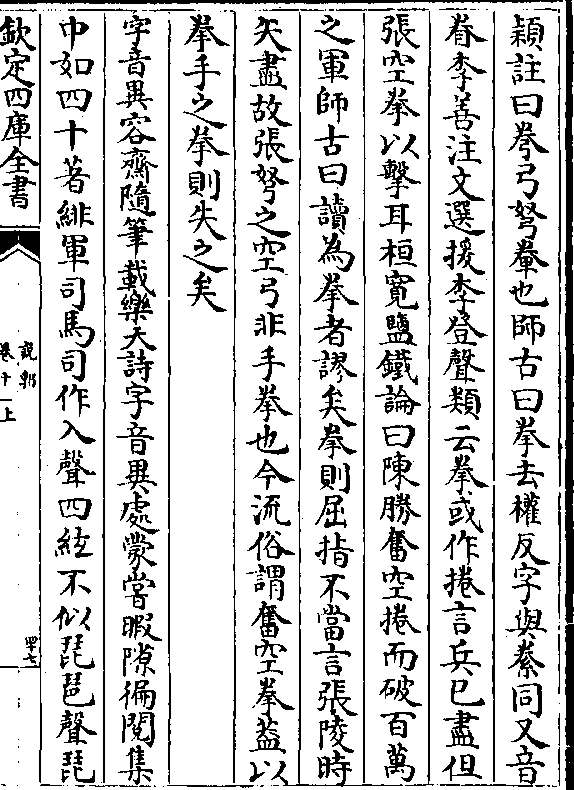 穎註曰拳弓弩𢍰也師古曰拳去權反字與絭同又音
眷李善注文選援李登聲類云拳或作捲言兵已盡但
張空拳以擊耳桓寛鹽鐵論曰陳勝奮空捲而破百萬
之軍師古曰讀為拳者謬矣拳則屈指不當言張陵時
矢盡故張弩之空弓非手拳也今流俗謂奮空拳葢以
拳手之拳則失之矣
字音異容齋隨筆載樂天詩字音異處蒙嘗暇隙徧閱集
中如四十著緋軍司馬司作入聲四絃不似琵琶聲琵
欽定四庫全書
說郛
卷十一上
四十七